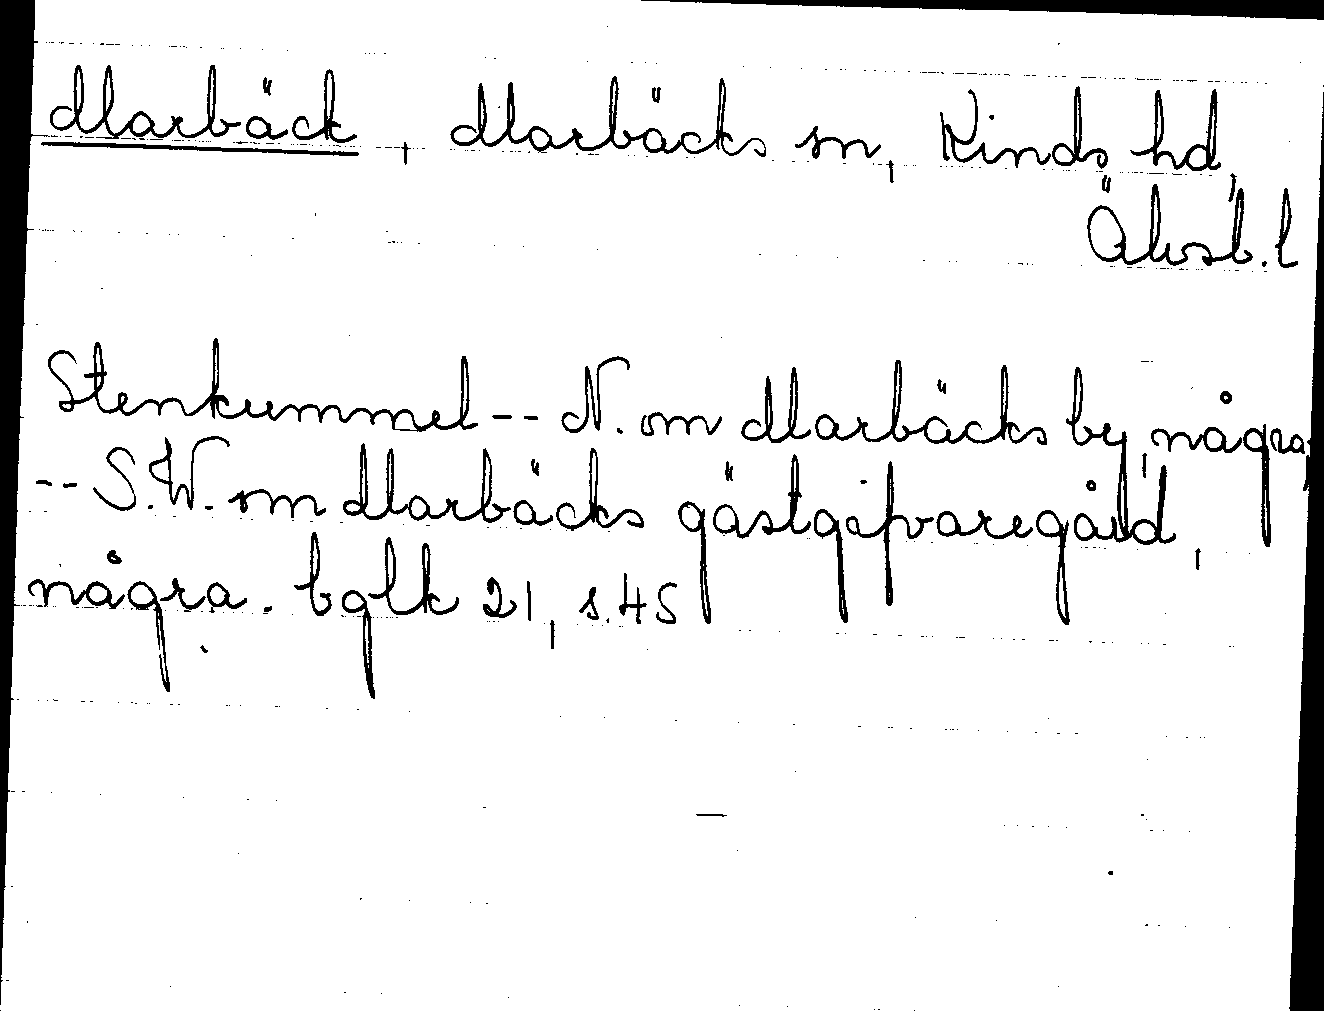 Marbäck, Marbäcks sn, Kinds hd,
Älvsb. l
Stenkummel -- N. om Marbäcks by, några,
-- S.W. om Marbäcks gästgifvaregård,
några. bglk 21, s. 45